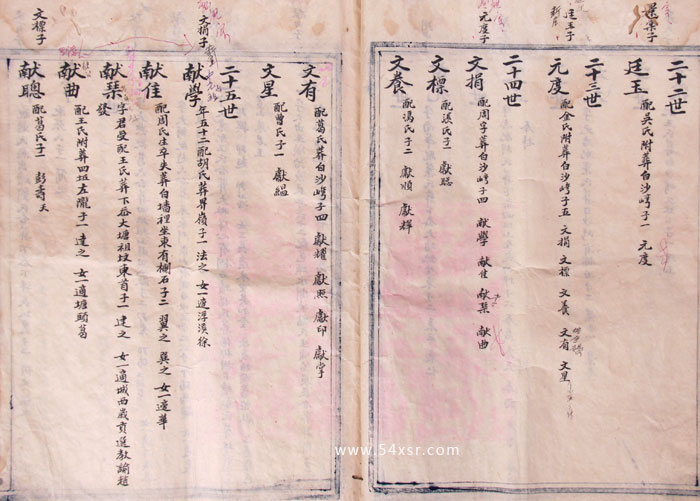 選榮子
二十二世
廷玉 配吳氏附葬白沙塆子一 元度
廷玉子
二十三世
元度 配金氏附葬白沙塆子五 文捐 文標 文養 文有 文星
元度子
二十四世
文捐 配周字葬白沙塆子四 献學 献佳 献琹 献曲
文標 配溪氏子一 獻聪
文養 配馮氏子二 獻順 獻輝
文有 配葛氏葬白沙塆子四 獻耀 獻熙 獻印 獻掌
文星 配曹氏子一 獻緼
二十五世
文捐子
献學 年五十二配胡氏葬畀嶺子一 法之 女一適浮溪徐
献佳 配周氏生卒失葬白墙裡坐東有欄石子二 翼之 巽之 女一適華
献琹發 字君受配王氏葬下沓大塘祖坟東首子一 建之 女一適城西歲貢選教諭趙
献曲 配王氏附葬四垣左隴子一 達之 女一適塘頭葛
文標子
献聰 配葛氏子一 彭壽
www.54xsr.com